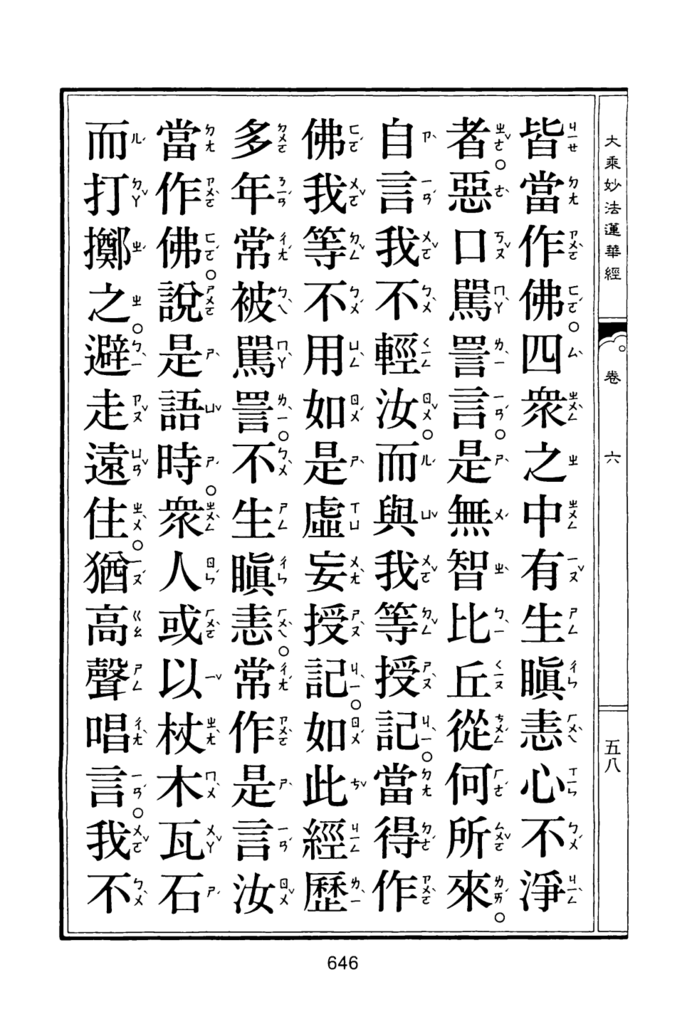 大乘妙法蓮華經
卷六
五八
皆當作佛。四衆之中有生瞋恚心不淨
者。惡口罵詈言。是無智比丘從何所來。
自言我不輕汝。而與我等授記。當得作
佛我等不用如是虛妄授記。如此經歷
多年常被罵詈。不生瞋恚。常作是言汝
當作佛。說是語時。衆人或以杖木瓦石
而打擲之。避走遠住。猶高聲唱言。我不
646